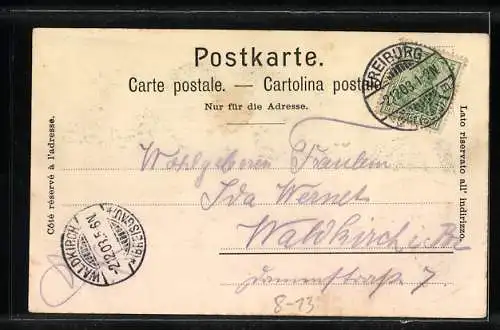 Postkarte.
Carte postale. — Cartolina postale
Nur für die Adresse.
Côté réservé à l'adresse.
Lato riservato all' indirizzo.
FREIBURG
2.12.03.
WALDKIRCH
2.12.03. 5-6N.
Wohlgeboren Fräulein
Ida Wernet
Waldkirch i. Br
7
8-13